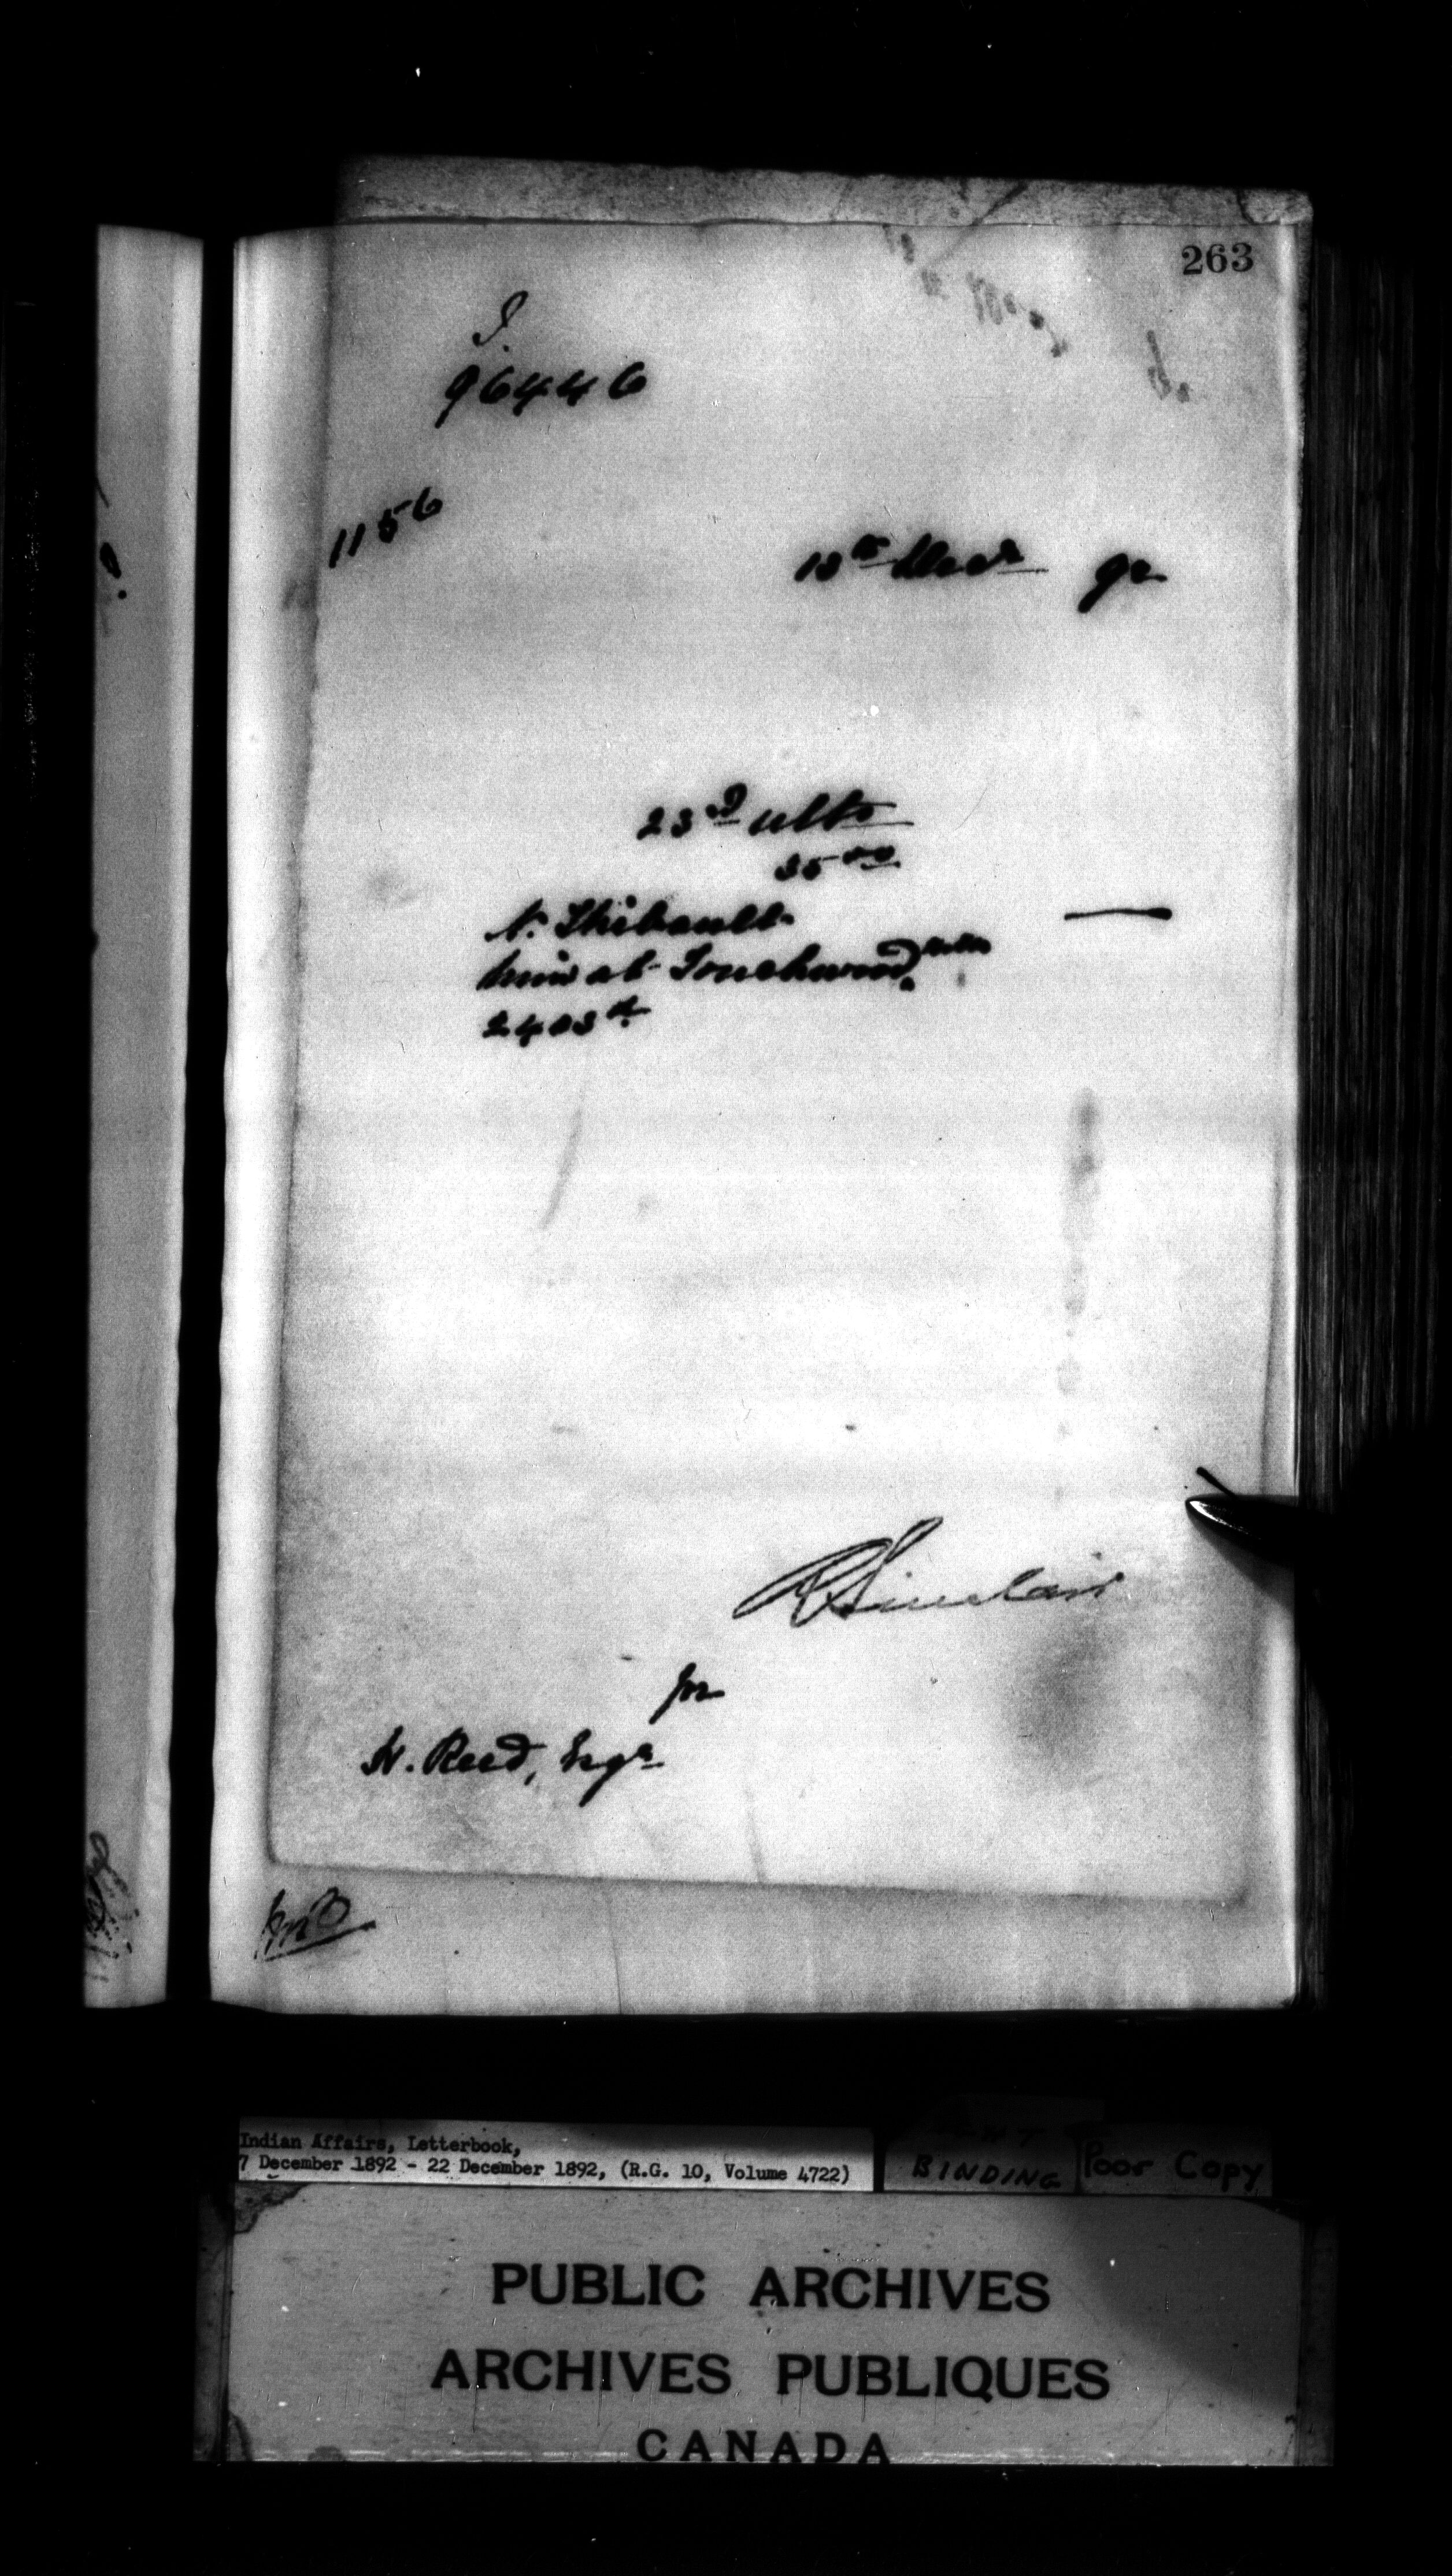 263
I.
96446
1156
13th Decr 92
23rd ulto
35 00
N. Thibault
him at Touchwood
2403
R Sinclair
for
H. Reed, Esqr
Indian Affairs, Letterbook,
7 December 1892 - 22 December 1892, (R.G. 10, Volume 4722)
BINDING
Poor Copy
PUBLIC ARCHIVES
ARCHIVES PUBLIQUES
CANADA